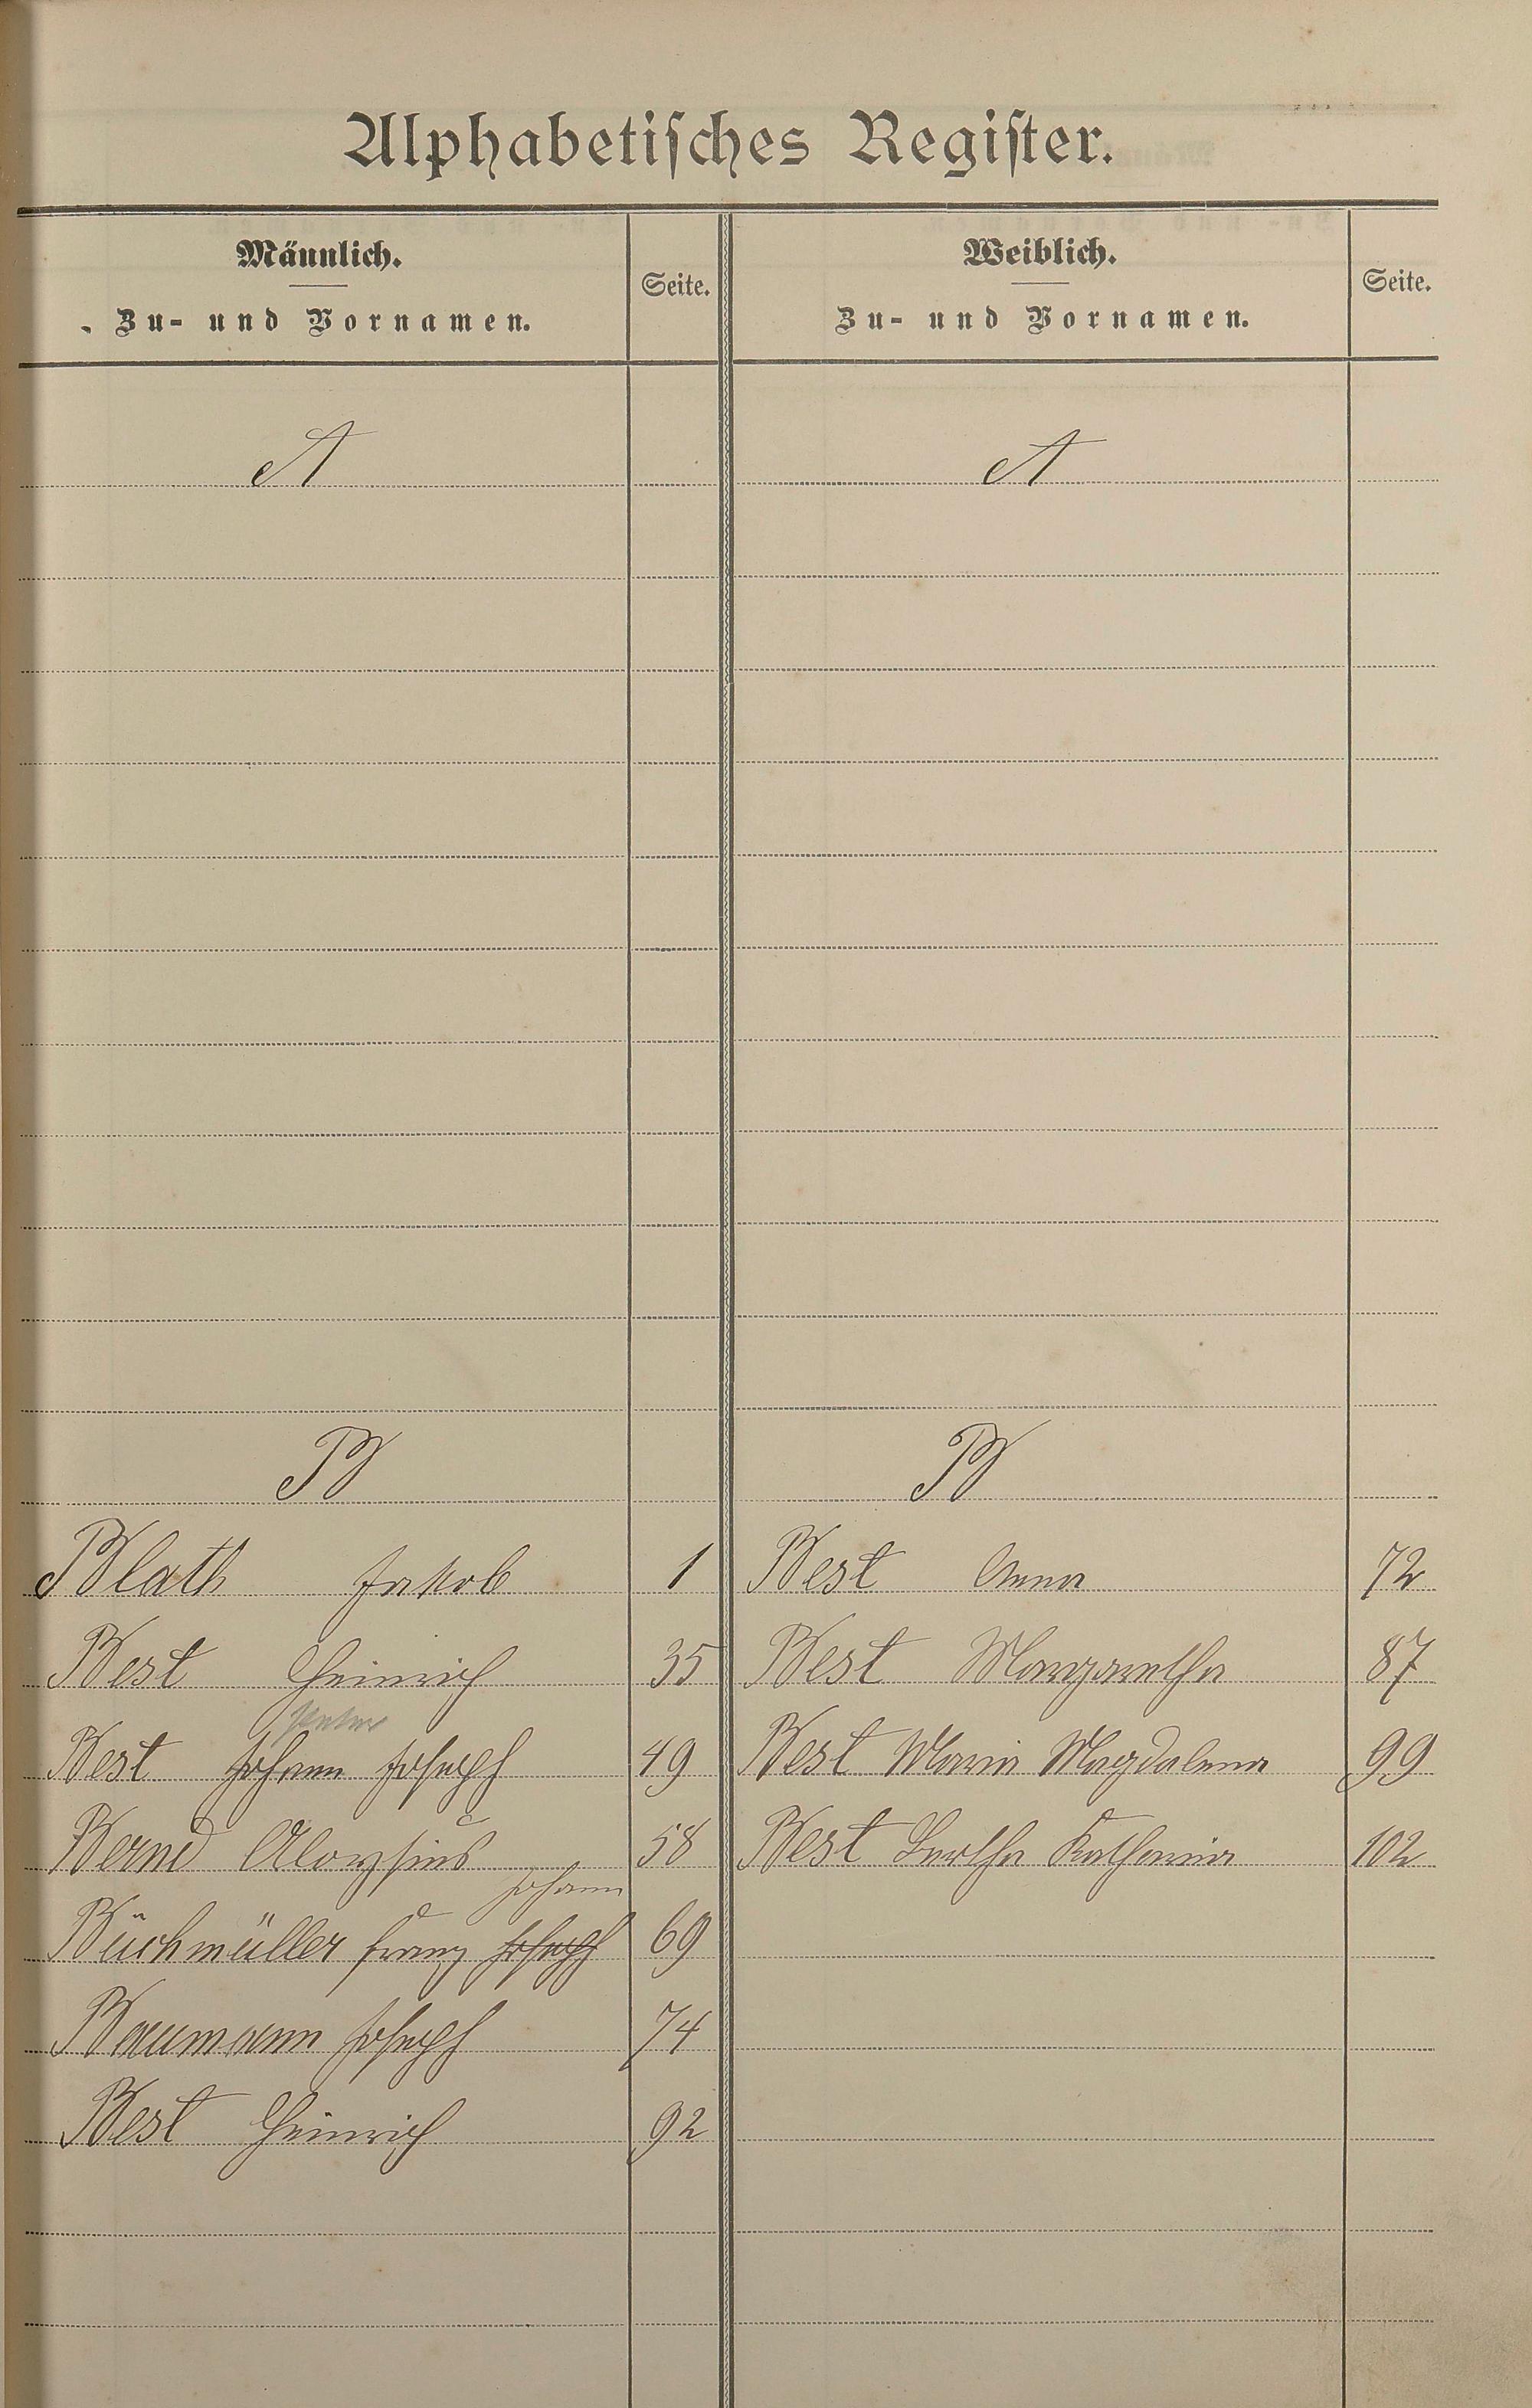 Alphabetisches Register.
Männlich.
Zu- und Vornamen.
Seite.
Weiblich.
Zu- und Vornamen.
Seite.
A
A
B
B
Blath Jakob 1
Best Anna 72
Best Heinrich 35
Best Margaretha 87
Best Johann Joseph 49
Best Maria Magdalena 99
Bernd Aloysius 58
Best Bertha Katharina 102
Johann
Buchmüller Franz Joseph 69
Baumann Joseph 74
Best Heinrich 92